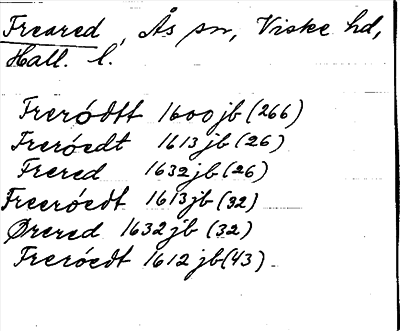 Freared, Ås sn, Viske hd,
Hall. l.
Freróđtt 1600 jb (266)
Freróedt 1613 jb (26)
Frered 1632 jb (26)
Freeróedt 1613 jb (32)
Ørered 1632 jb (32)
Freróedt 1612 jb (43)